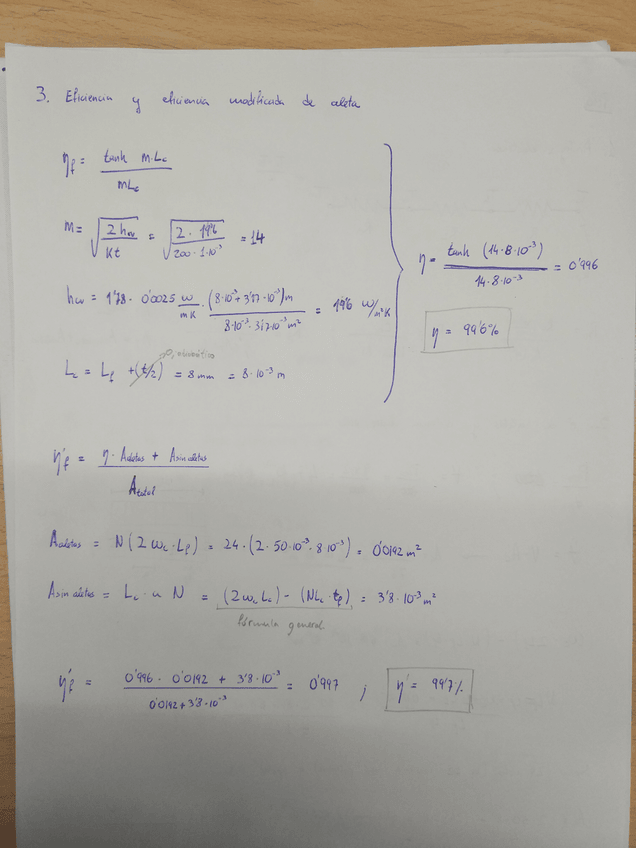 3. Eficiencia y eficiencia modificada de aleta
η_f = tanh m·L_c / mL_c
m = √(2 h_cv / Kt) = √(2 · 19'6 / 200 · 1·10⁻³) = 14
h_cv = 1'78 · 0'0025 w/mK · (8·10⁻³ + 3'17·10⁻³)m / 8·10⁻³ · 3'17·10⁻³ m² = 19'6 W/m²K
L_c = L_f + (t/2) = 8 mm = 8·10⁻³ m
0, adiabático
η = tanh (14·8·10⁻³) / 14·8·10⁻³ = 0'996
η = 99'6%
η'_f = η · A_aletas + A_sin aletas / A_total
A_aletas = N (2 w_c · L_f) = 24 · (2 · 50·10⁻³ · 8·10⁻³) = 0'0192 m²
A_sin aletas = L_c · a N = (2 w_c L_c) - (N L_c · t_f) = 3'8·10⁻³ m²
fórmula general
η'_f = 0'996 · 0'0192 + 3'8·10⁻³ / 0'0192 + 3'8·10⁻³ = 0'997 ; η' = 99'7%